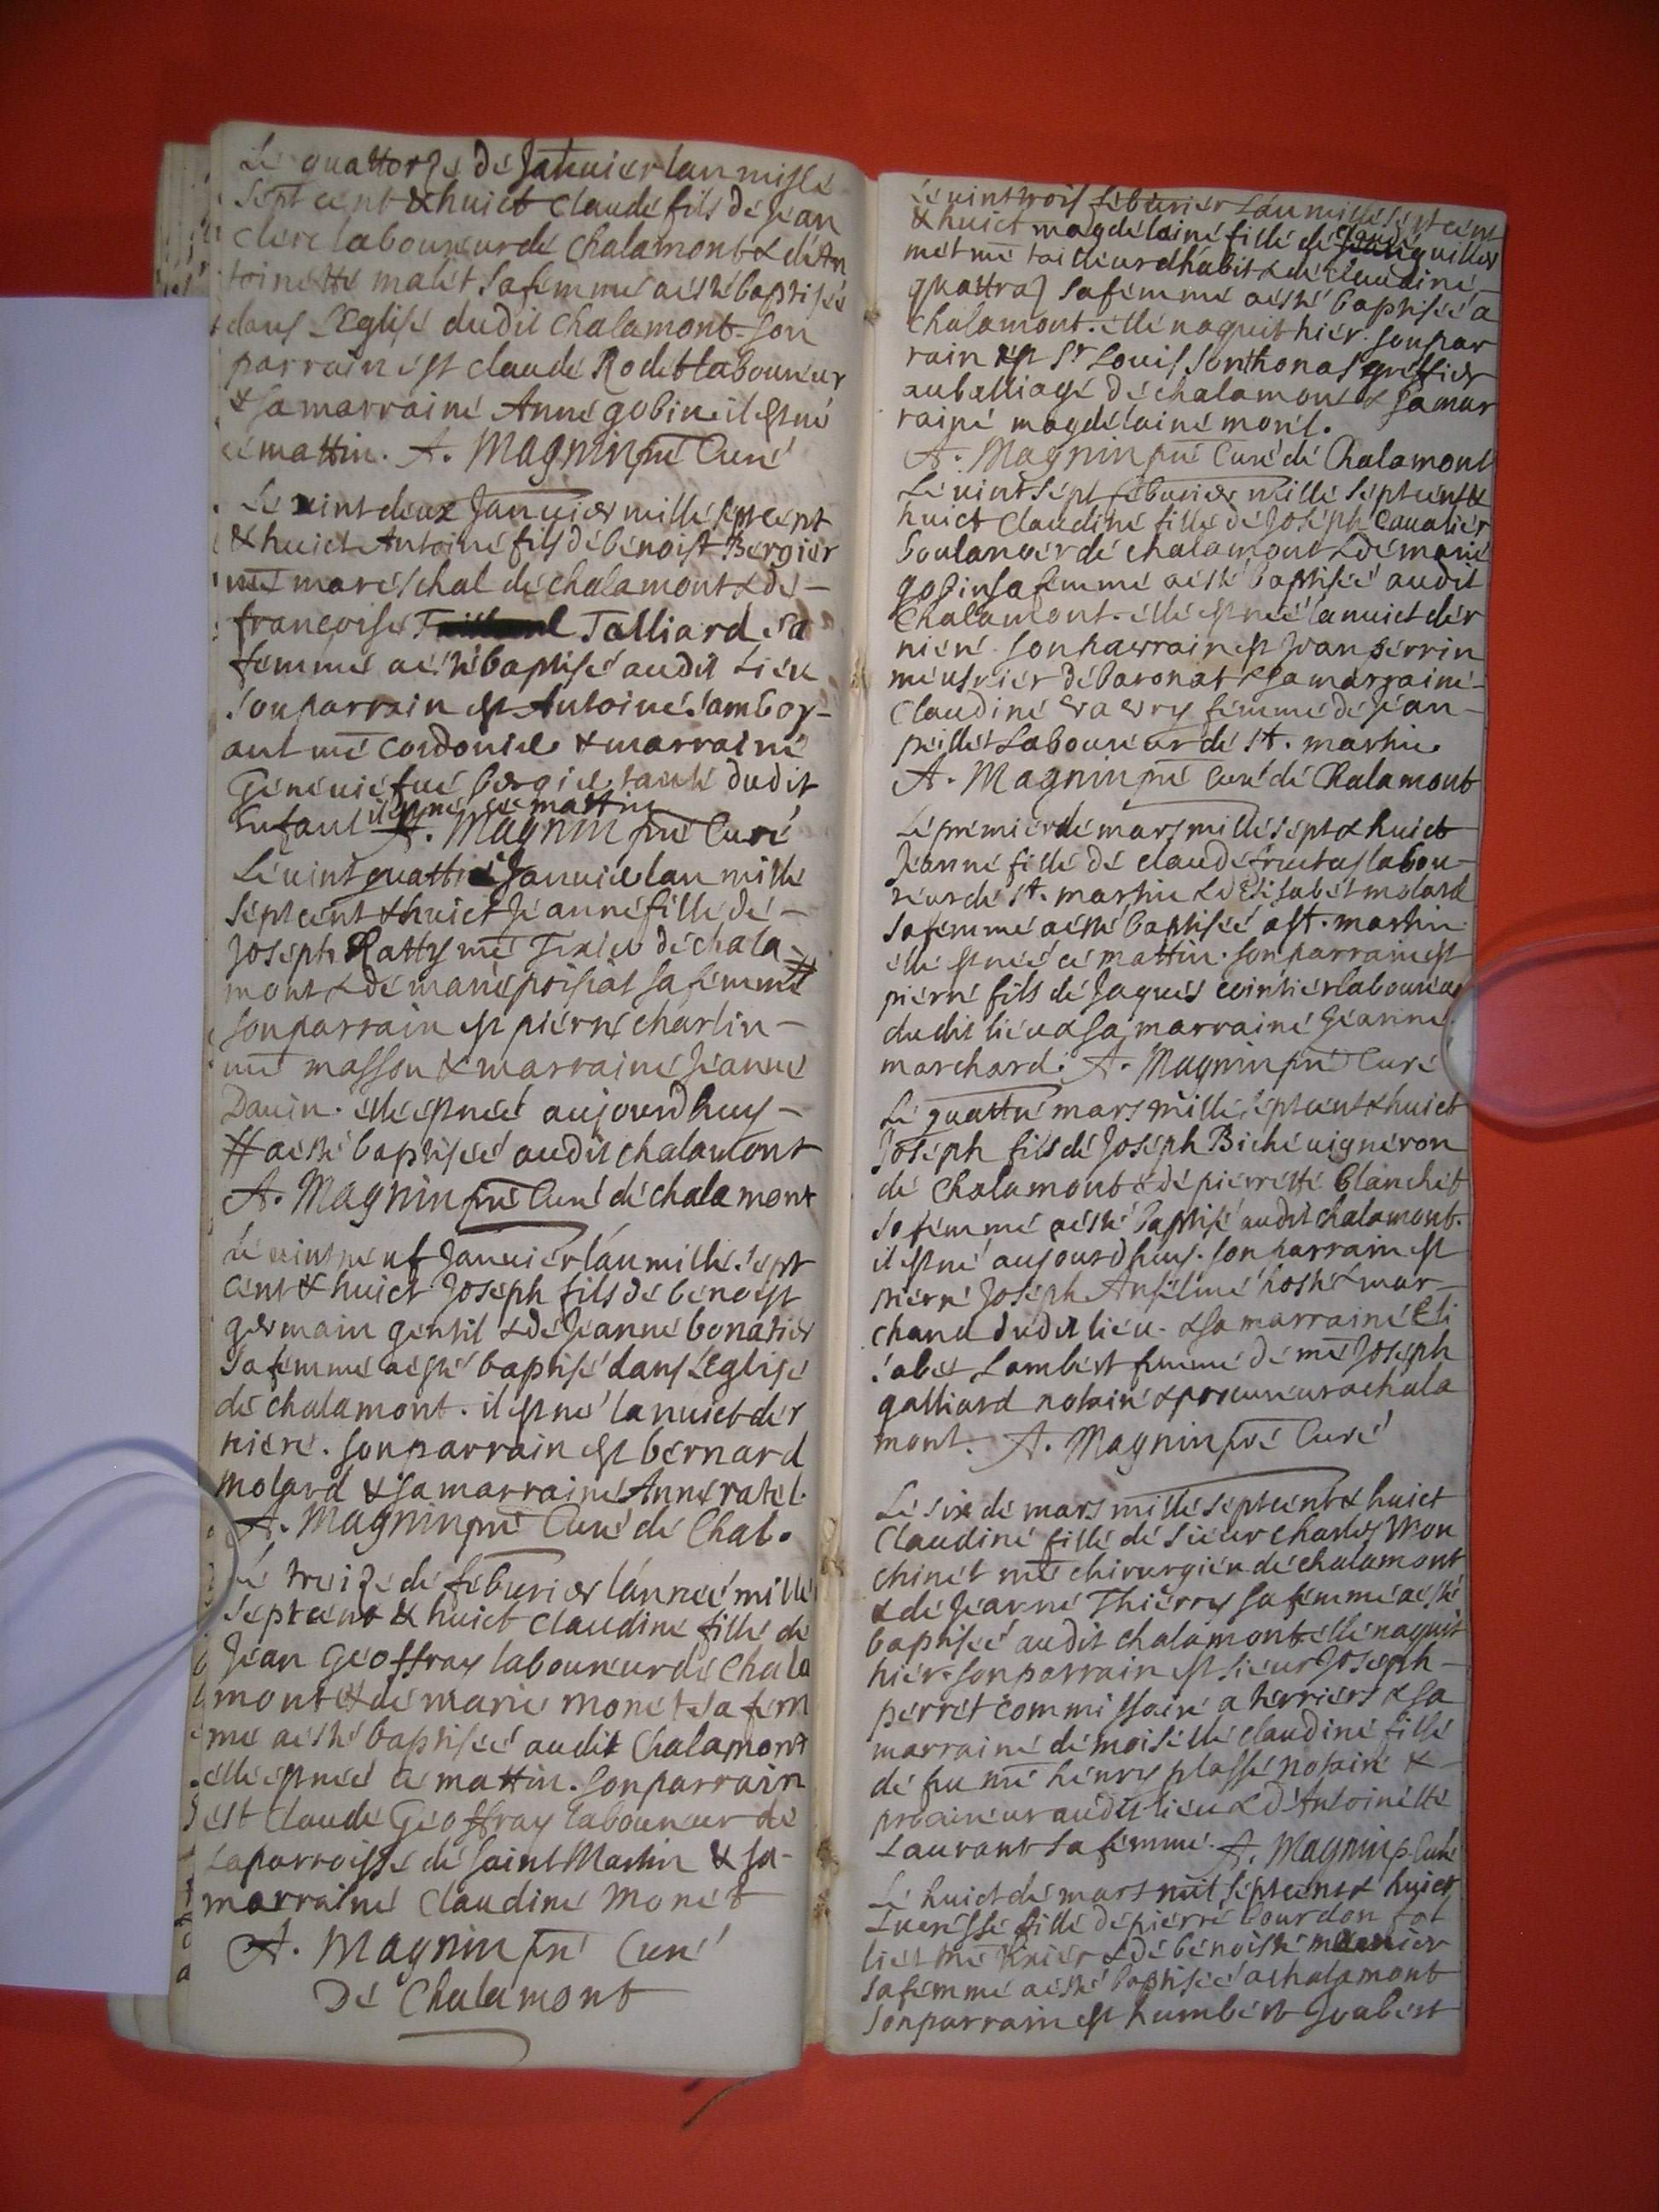 Le quattorze de Januier lan mille
Sept cent & huict Claude fils de Jean
Clerc laboureur de Chalamont & d'An
toinette malet Sa femme a esté baptisé
dans L'Eglise dudit Chalamont. Son
parrain est Claude Rodet laboureur
& sa marraine Anne gobin il est né
ce mattin. A. Magnin prē Curé
Le vint deux Januier mille sept cent
& huict Antoine fils de benoist Bergier
mē mareschal de chalamont & de -
francoise Talliard Sa
femme a esté baptisé audit Lieu
Son parrain est Antoine
mē cordonie & marraine
Geneuiefue bergier tante dudit
Enfant il est né ce mattin A. Magnin prē Curé
Le vint quattre Januier lan mille
Sept cent & huict Jeanne fille de -
Joseph Ratty mē Tixier de chala #
mont & de marie poisat sa femme
son parrain est pierre charlin -
mē masson & marraine Jeanne
Dauin. elle est neé aujourdhuy -
# a esté baptiseé audit chalamont
A. Magnin prē Curé de chalamont
Le vint neuf Januier l'an mille Sept
cent & huict Joseph fils de benoist
germain gentil & de Jeanne bonatier
Sa femme a esté baptisé dans L'Eglise
de chalamont. il est né la nuict der
niere. son parrain est bernard
molard & sa marraine Anne ratel.
A. Magnin prē Curé de Chal.
Le treize de feburier l'anneé mille
Sept cent & huict Claudine fille de
Jean Geoffray laboureur de Chala
mont & de marie monet sa fem
me a esté baptiseé audit Chalamont
elle est neé ce mattin. son parrain
est Claude Geoffray laboureur de
La parroisse de saint Martin & sa -
marraine Claudine Monet
A. Magnin prē Curé
De Chalamont
Le vint trois feburier L'an mille sept cent
& huict magdelaine fille de guilles
met mē tailleur dhabit & de Claudine -
quattraz sa femme a esté baptiseé a
Chalamont. elle naquit hier. son par
rain est Sr Louis Sonthonas greffier
au balliage de chalamont & sa mar
raine magdelaine monet.
A. Magnin prē Curé de Chalamont
Le vint sept feburier mille sept cent &
huict Claudine fille de Joseph Caualier
boulanger de chalamont & de marie
gobin sa femme a esté baptiseé audit
Chalamont. elle est neé la nuict der
niere. son parrain est Jean perrin
meusnier de baronat & sa marraine -
Claudine femme de Jean -
peillet Laboureur de St. martin.
A. Magnin prē Curé de Chalamont
Le premier de mars mille sept & huict
Jeanne fille de claude fructus labou -
reur de St. martin & d'Elisabet molard
sa femme a esté baptiseé a St. martin
elle est neé ce mattin. son parrain est
pierre fils de Jaques cointier laboureur
dudit lieu & sa marraine Jeanne
marchard. A. Magnin prē Curé
Le quattre mars mille sept cent & huict
Joseph fils de Joseph Biche uigneron
de Chalamont & de pierrette blanchet
sa femme a esté baptisé audit chalamont.
il est né aujourdhuy. son parrain est
pierre Joseph Anselme hoste & mar -
chand dudit lieu. & sa marraine Eli
sabet Lambert femme de mē Joseph
galliard notaire & procureur a chala
mont. A. Magnin prē Curé
Le six de mars mille sept cent & huict
Claudine fille de sieur Charles Mon
chinet mē chirurgien de chalamont
& de Jeanne Thierry sa femme a esté
baptiseé audit chalamont elle naquit
hier. son parrain est sieur Joseph -
perret commissaire a terriers & sa
marraine demoiselle claudine fille
de feu mē henry plasse notaire & -
procureur audit lieu & d'Antoinette
Laurant sa femme. A. Magnin p. Curé
Le huict de mars mil sept cent & huict
Lucresse fille de pierre bourdon tot
liet mē & de benoiste meunier
sa femme a esté baptiseé a chalamont
son parrain est humbert Joubert